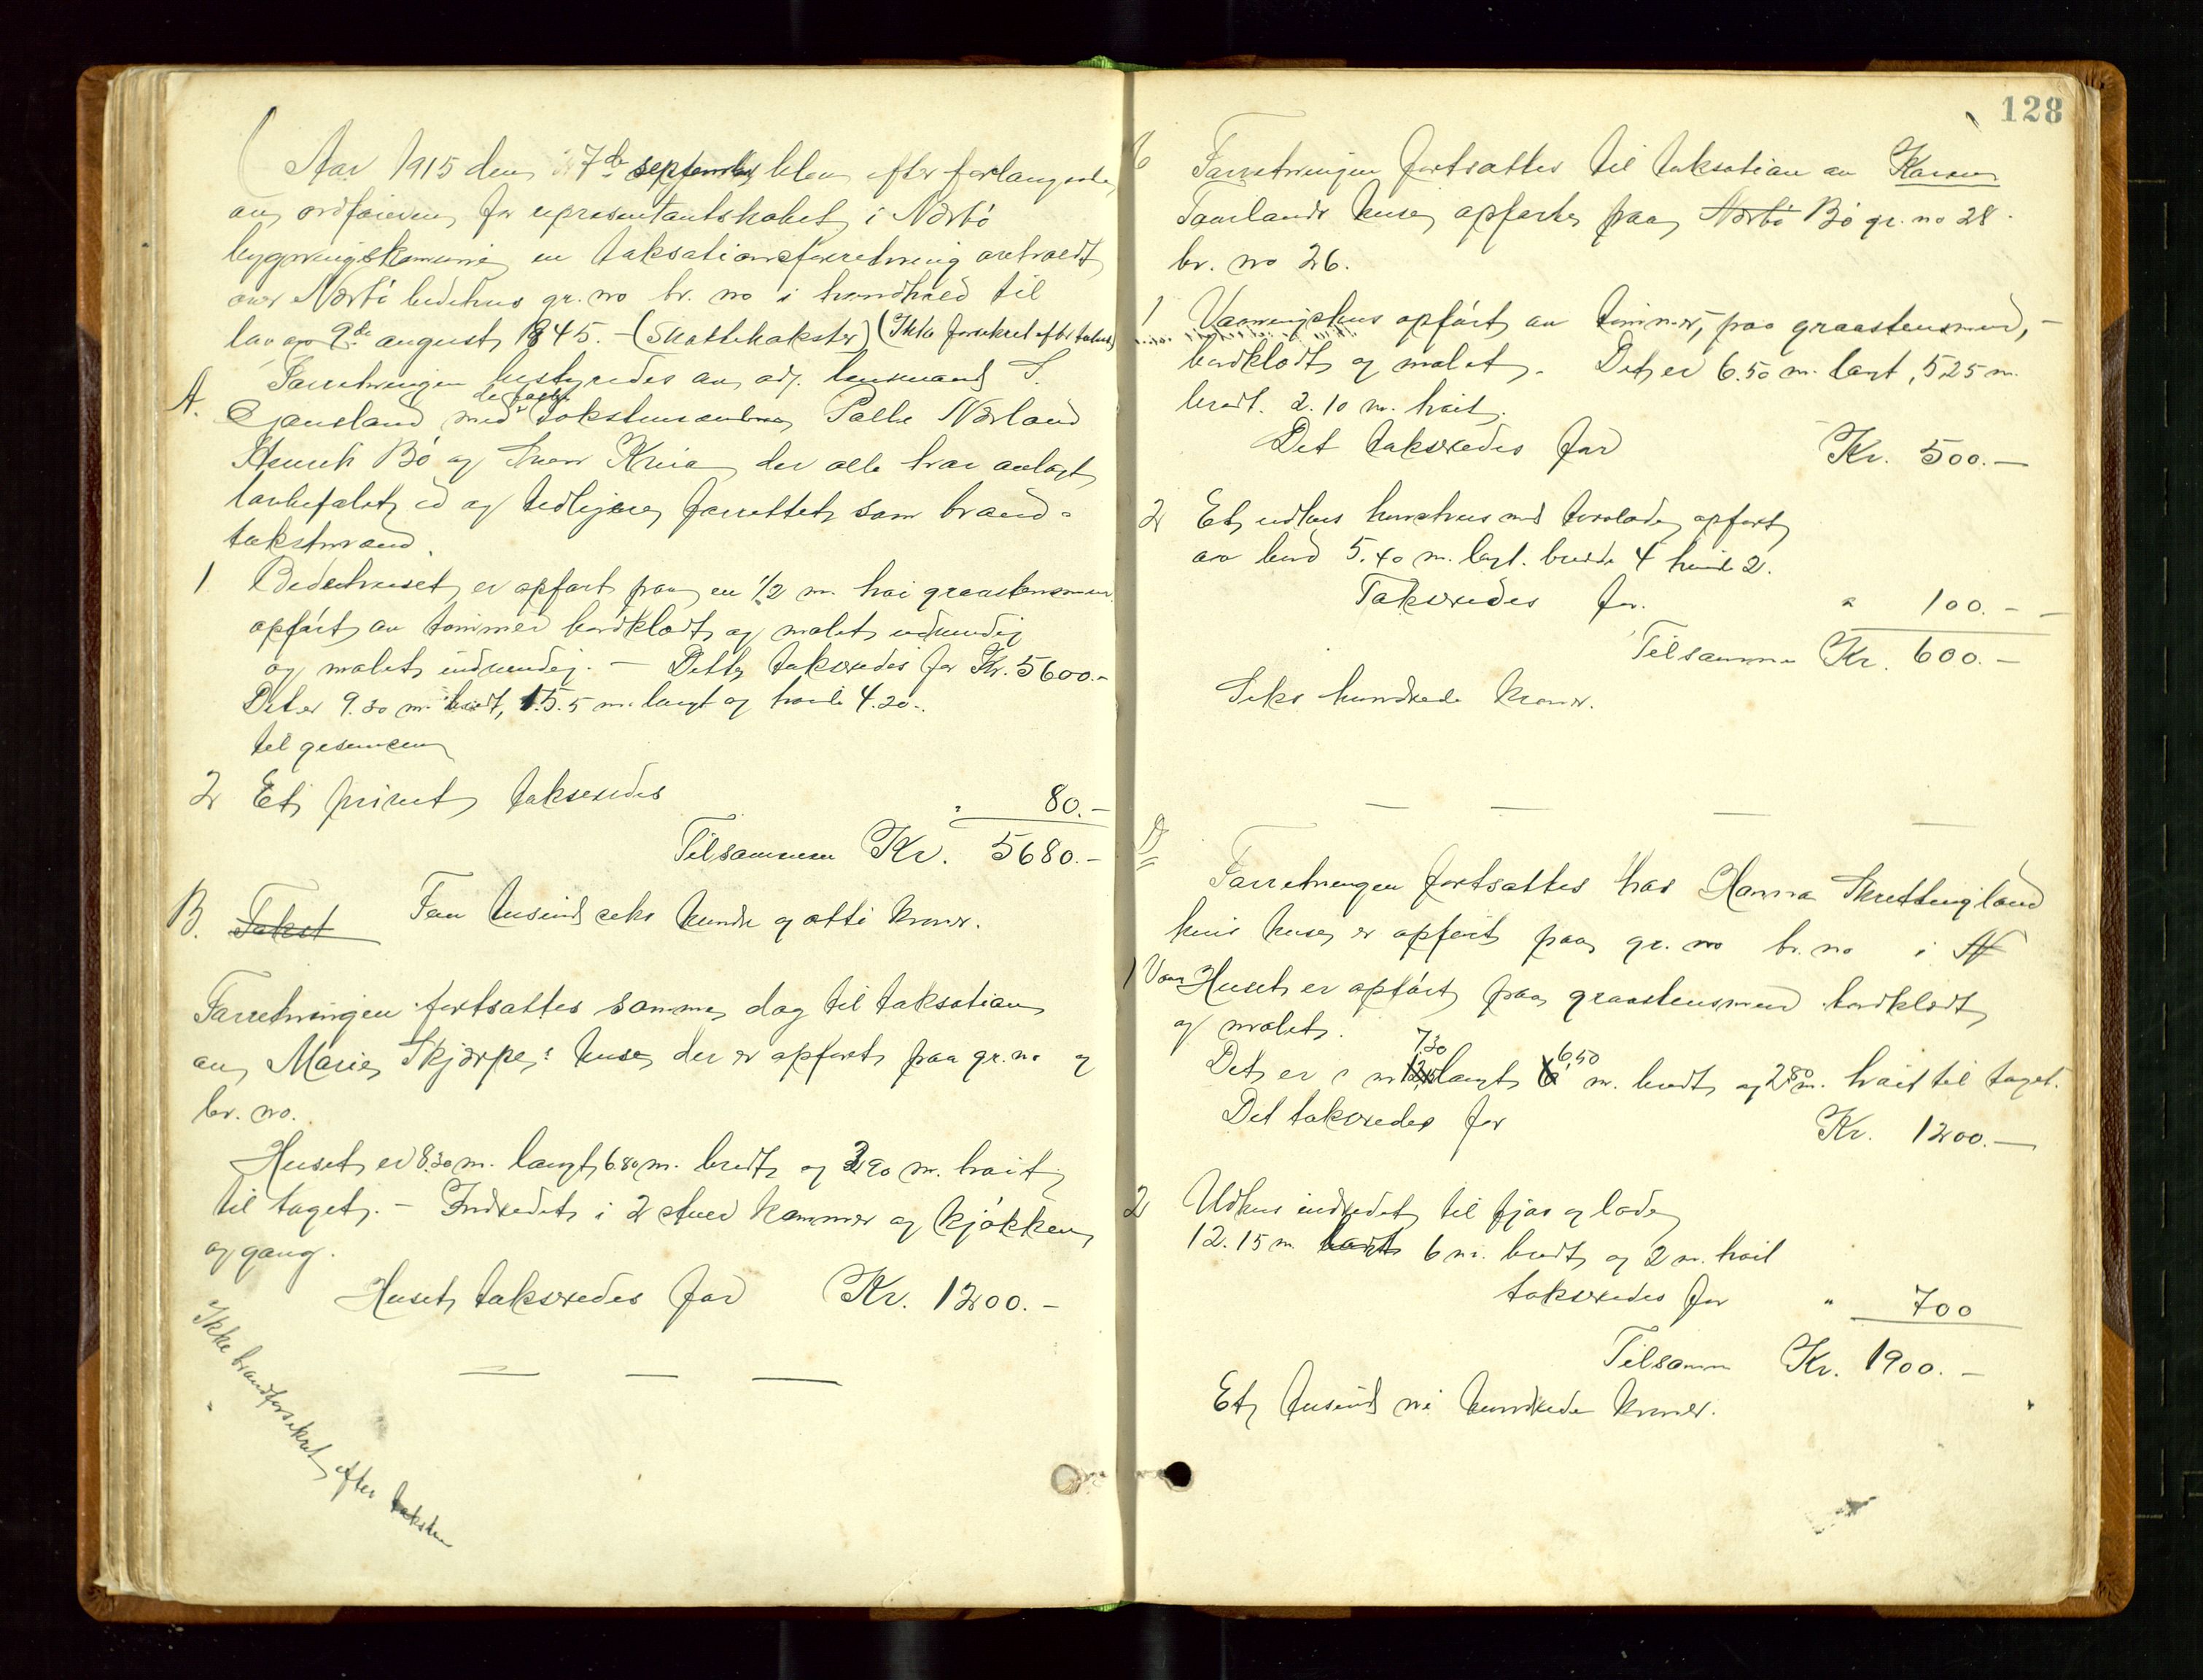 Aar 1915 den 7de september blev efter forlangende
av ordføreren for representantskabet i Nærbø
bygningskommune en taksationsforretning avholdt
over Nærbø bedehus gr. no br. no i henhold til
lov av 9de august 1845. - (Skattetakster) (Ikke forsikret efter taksten)
Forretningen bestyredes av adj. lensmand S.
A. Gjøusland med de faste takstmænd Palle Nærland
Henrik Bø og Kvia der alle har avlagt
lovbefalet ed og tidligere forrettet som brand-
takstmænd.
1 Bedehuset er opført paa en 1/2 m. høi graastensmur
opført av tømmer bordklædt og malet utvendig
og malet indvendig. - Dette takseredes for Kr. 5600.-
Det er 9.30 m. bredt, 15.5 m. langt og høide 4.20.
til gesimsen
2 Et privet takseredes " 80.-
Tilsammen Kr. 5680.-
B. Takst Fem tusind seks hundre og otti kroner.
Forretningen fortsattes samme dag til taksation
av Marie Skjærpe's huse der er opført paa gr. no og
br. no.
Huset er 8.30 m. langt, 6.80 m. bredt og 3.90 m. høit
til taget. - Indredet i 2 stuer kammer og kjøkken
og gang.
Huset takseredes for Kr. 1200.-
Ikke brandforsikret efter taksten
128
C Forretningen fortsattes til taksation av Karen
Taarlands huse opførte paa Nærbø Bø gr. no 28
br. no 26.
1 Vaaningshus opført av tømmer, paa graastensmur, -
bordklædt og malet. Det er 6.50 m. langt, 5.25 m.
bredt. 2.10 m. høit.
Det takseredes for Kr. 500.-
2 Et udhus hønsehus med torvlade opført
av bord 5.40 m. langt. bredde 4 høide 2.
Takseredes for. " 100.-
Tilsammen Kr. 600.-
Seks hundrede kroner.
D
Forretningen fortsattes hos Hanna Skrettingland
hvis huse er opført paa gr. no br. no i N
1 Vaan Huset er opført paa graastensmur bordklædt
og malet.
Det er 7.30 m langt 6.50 m. bredt og 2.80 m. høit til taget.
Det takseredes for Kr. 1200.-
2 Udhus indredet til fjøs og lade
12.15 m. langt 6 m. bredt og 2 m. høit
takseredes for " 700
Tilsamm Kr. 1900.-
Et tusind ni hundrede kroner.